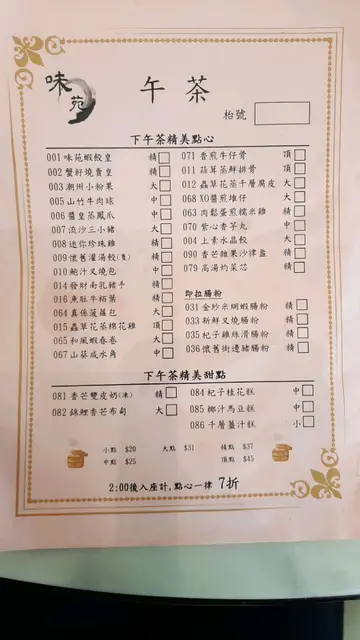 味苑
午茶
枱號
下午茶精美點心
001 味苑蝦餃皇 精
002 蟹籽燒賣皇 精
003 潮州小粉果 大
005 山竹牛肉球 中
006 醬皇蒸鳳爪 中
007 流沙三小豬 大
008 迷你珍珠雞 中
009 懷舊灌湯餃(隻) 精
010 鮑汁叉燒包 中
014 發財南乳豬手 精
016 東肶牛栢葉 精
064 真係菠蘿包 大
015 蟲草花茶棉花雞 頂
065 和風蝦春卷 大
067 山葵咸水角 中
071 香煎牛仔骨 頂
011 蒜茸蒸鮮排骨 頂
012 蟲草花蒸千層腐皮 大
068 XO醬煎堆仔 大
063 肉鬆蛋煎糯米雞 精
070 紫心香芋丸 中
004 上素水晶餃 大
090 香芒雞果沙律盞 精
079 高湯灼菜芯 精
即拉腸粉
031 金紗米網蝦腸粉 精
033 新鮮叉燒腸粉 精
035 杞子雞絲滑腸粉 精
036 懷舊街邊豬腸粉 精
下午茶精美甜點
081 香芒雙皮奶(凍) 精
082 錦鯉香芒布甸 大
084 杞子桂花糕 中
085 椰汁馬豆糕 中
086 千層薑汁糕 小
小點 $20 大點 $31 精點 $37
中點 $25 頂點 $45
2:00後入座計,點心一律 7折